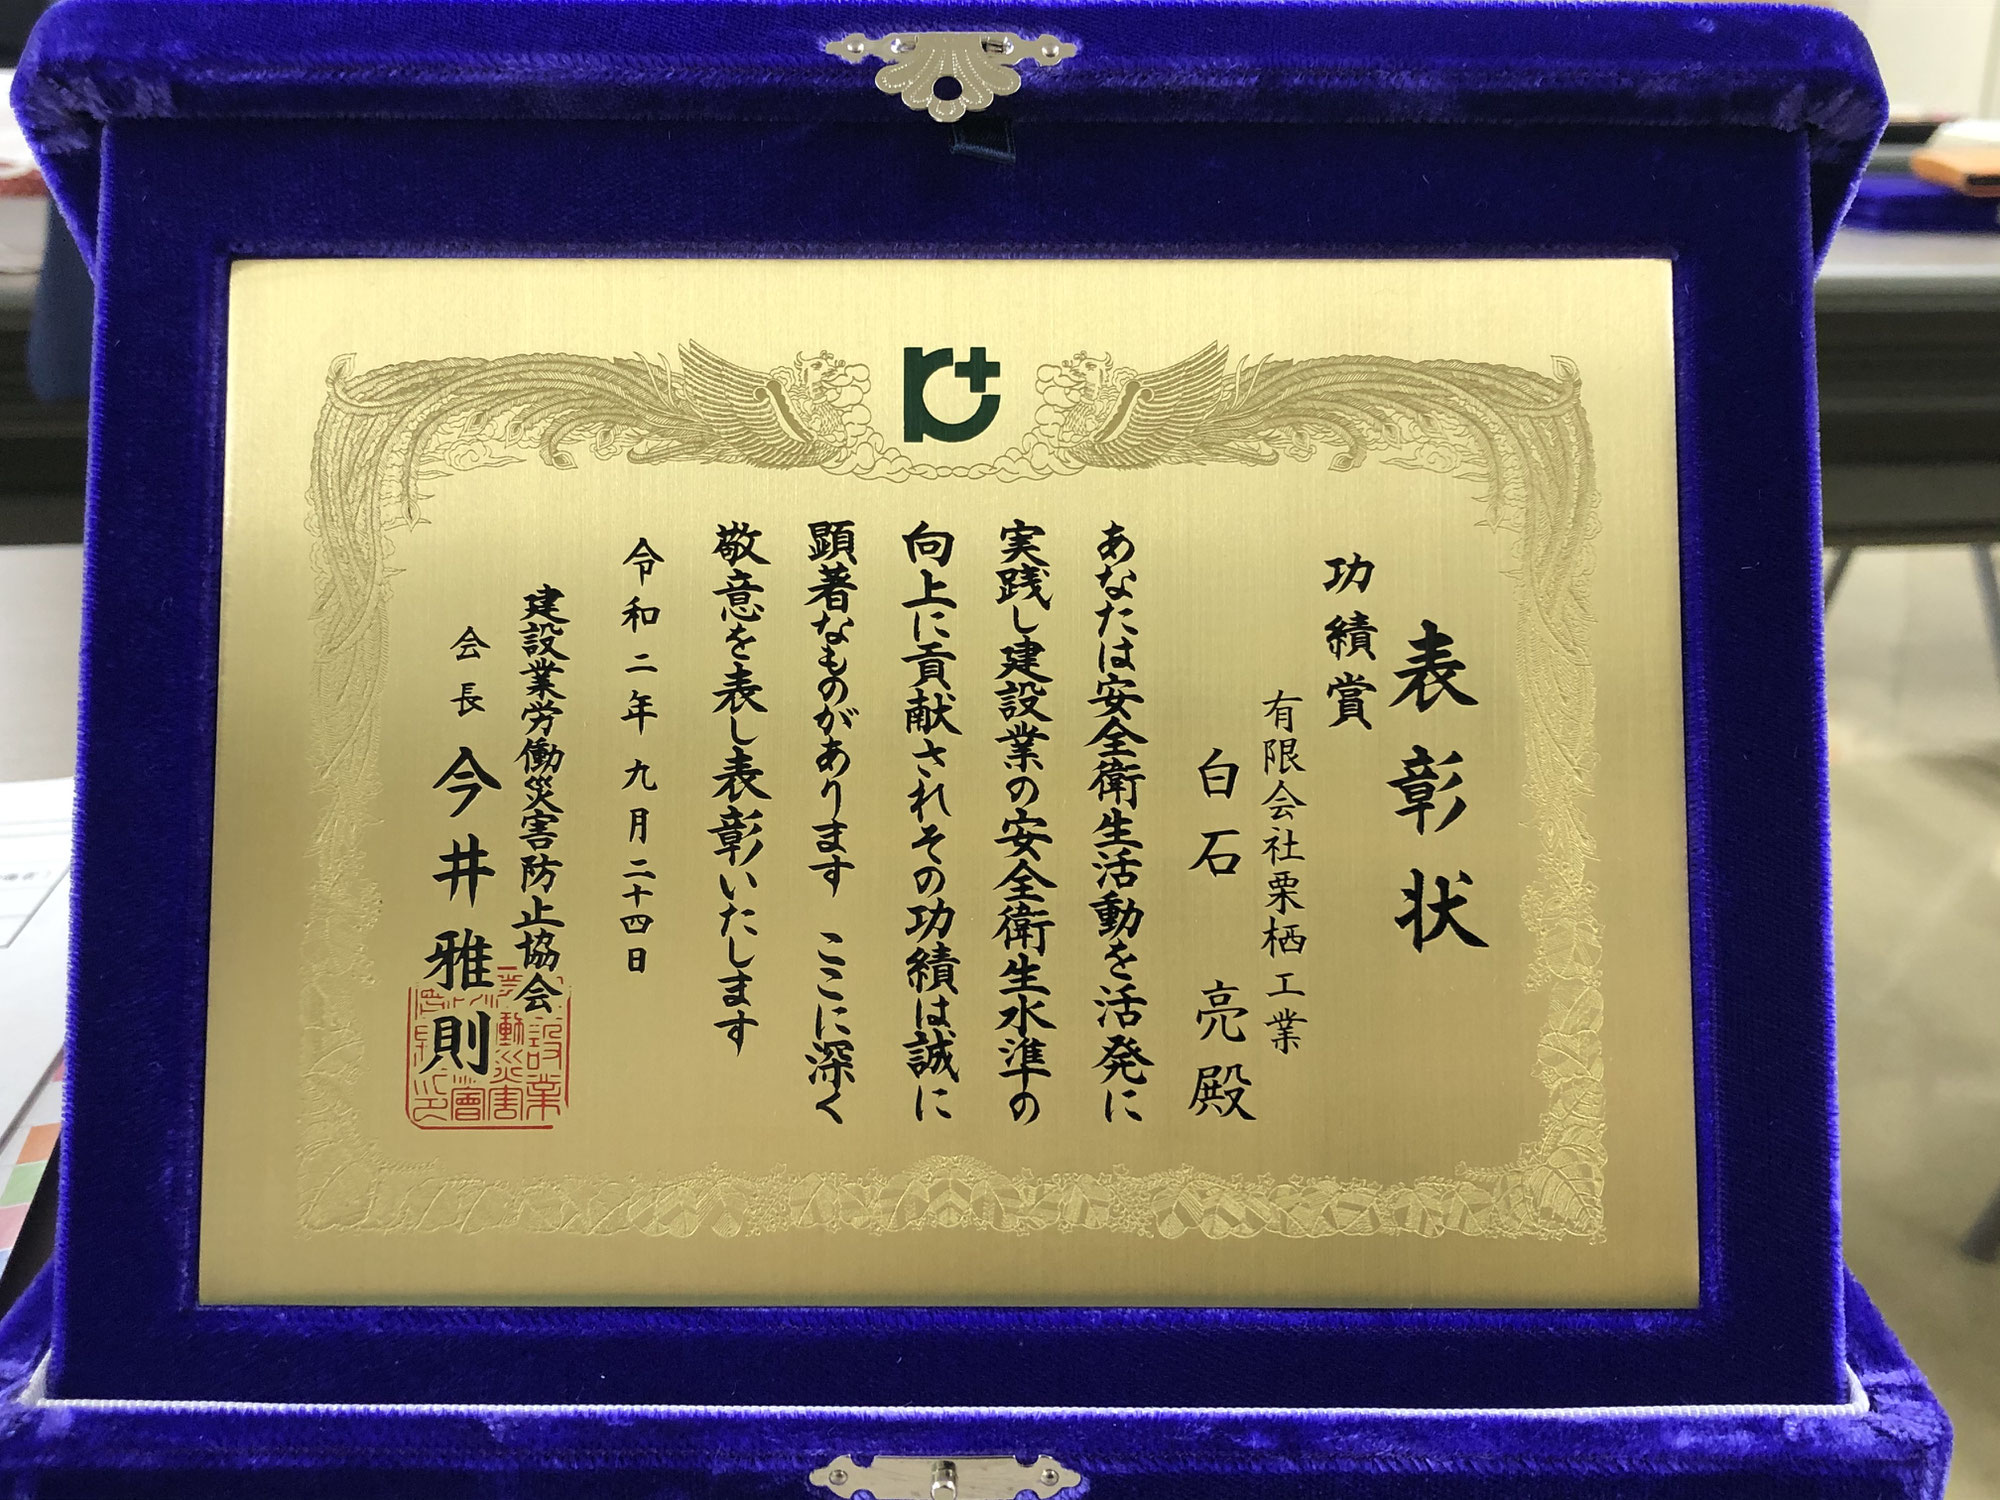 表彰状
功績賞
有限会社栗栖工業
白石 亮殿
あなたは安全衛生活動を活発に
実践し建設業の安全衛生水準の
向上に貢献されその功績は誠に
顕著なものがあります ここに深く
敬意を表し表彰いたします
令和二年九月二十四日
建設業労働災害防止協会
会長 今井雅則